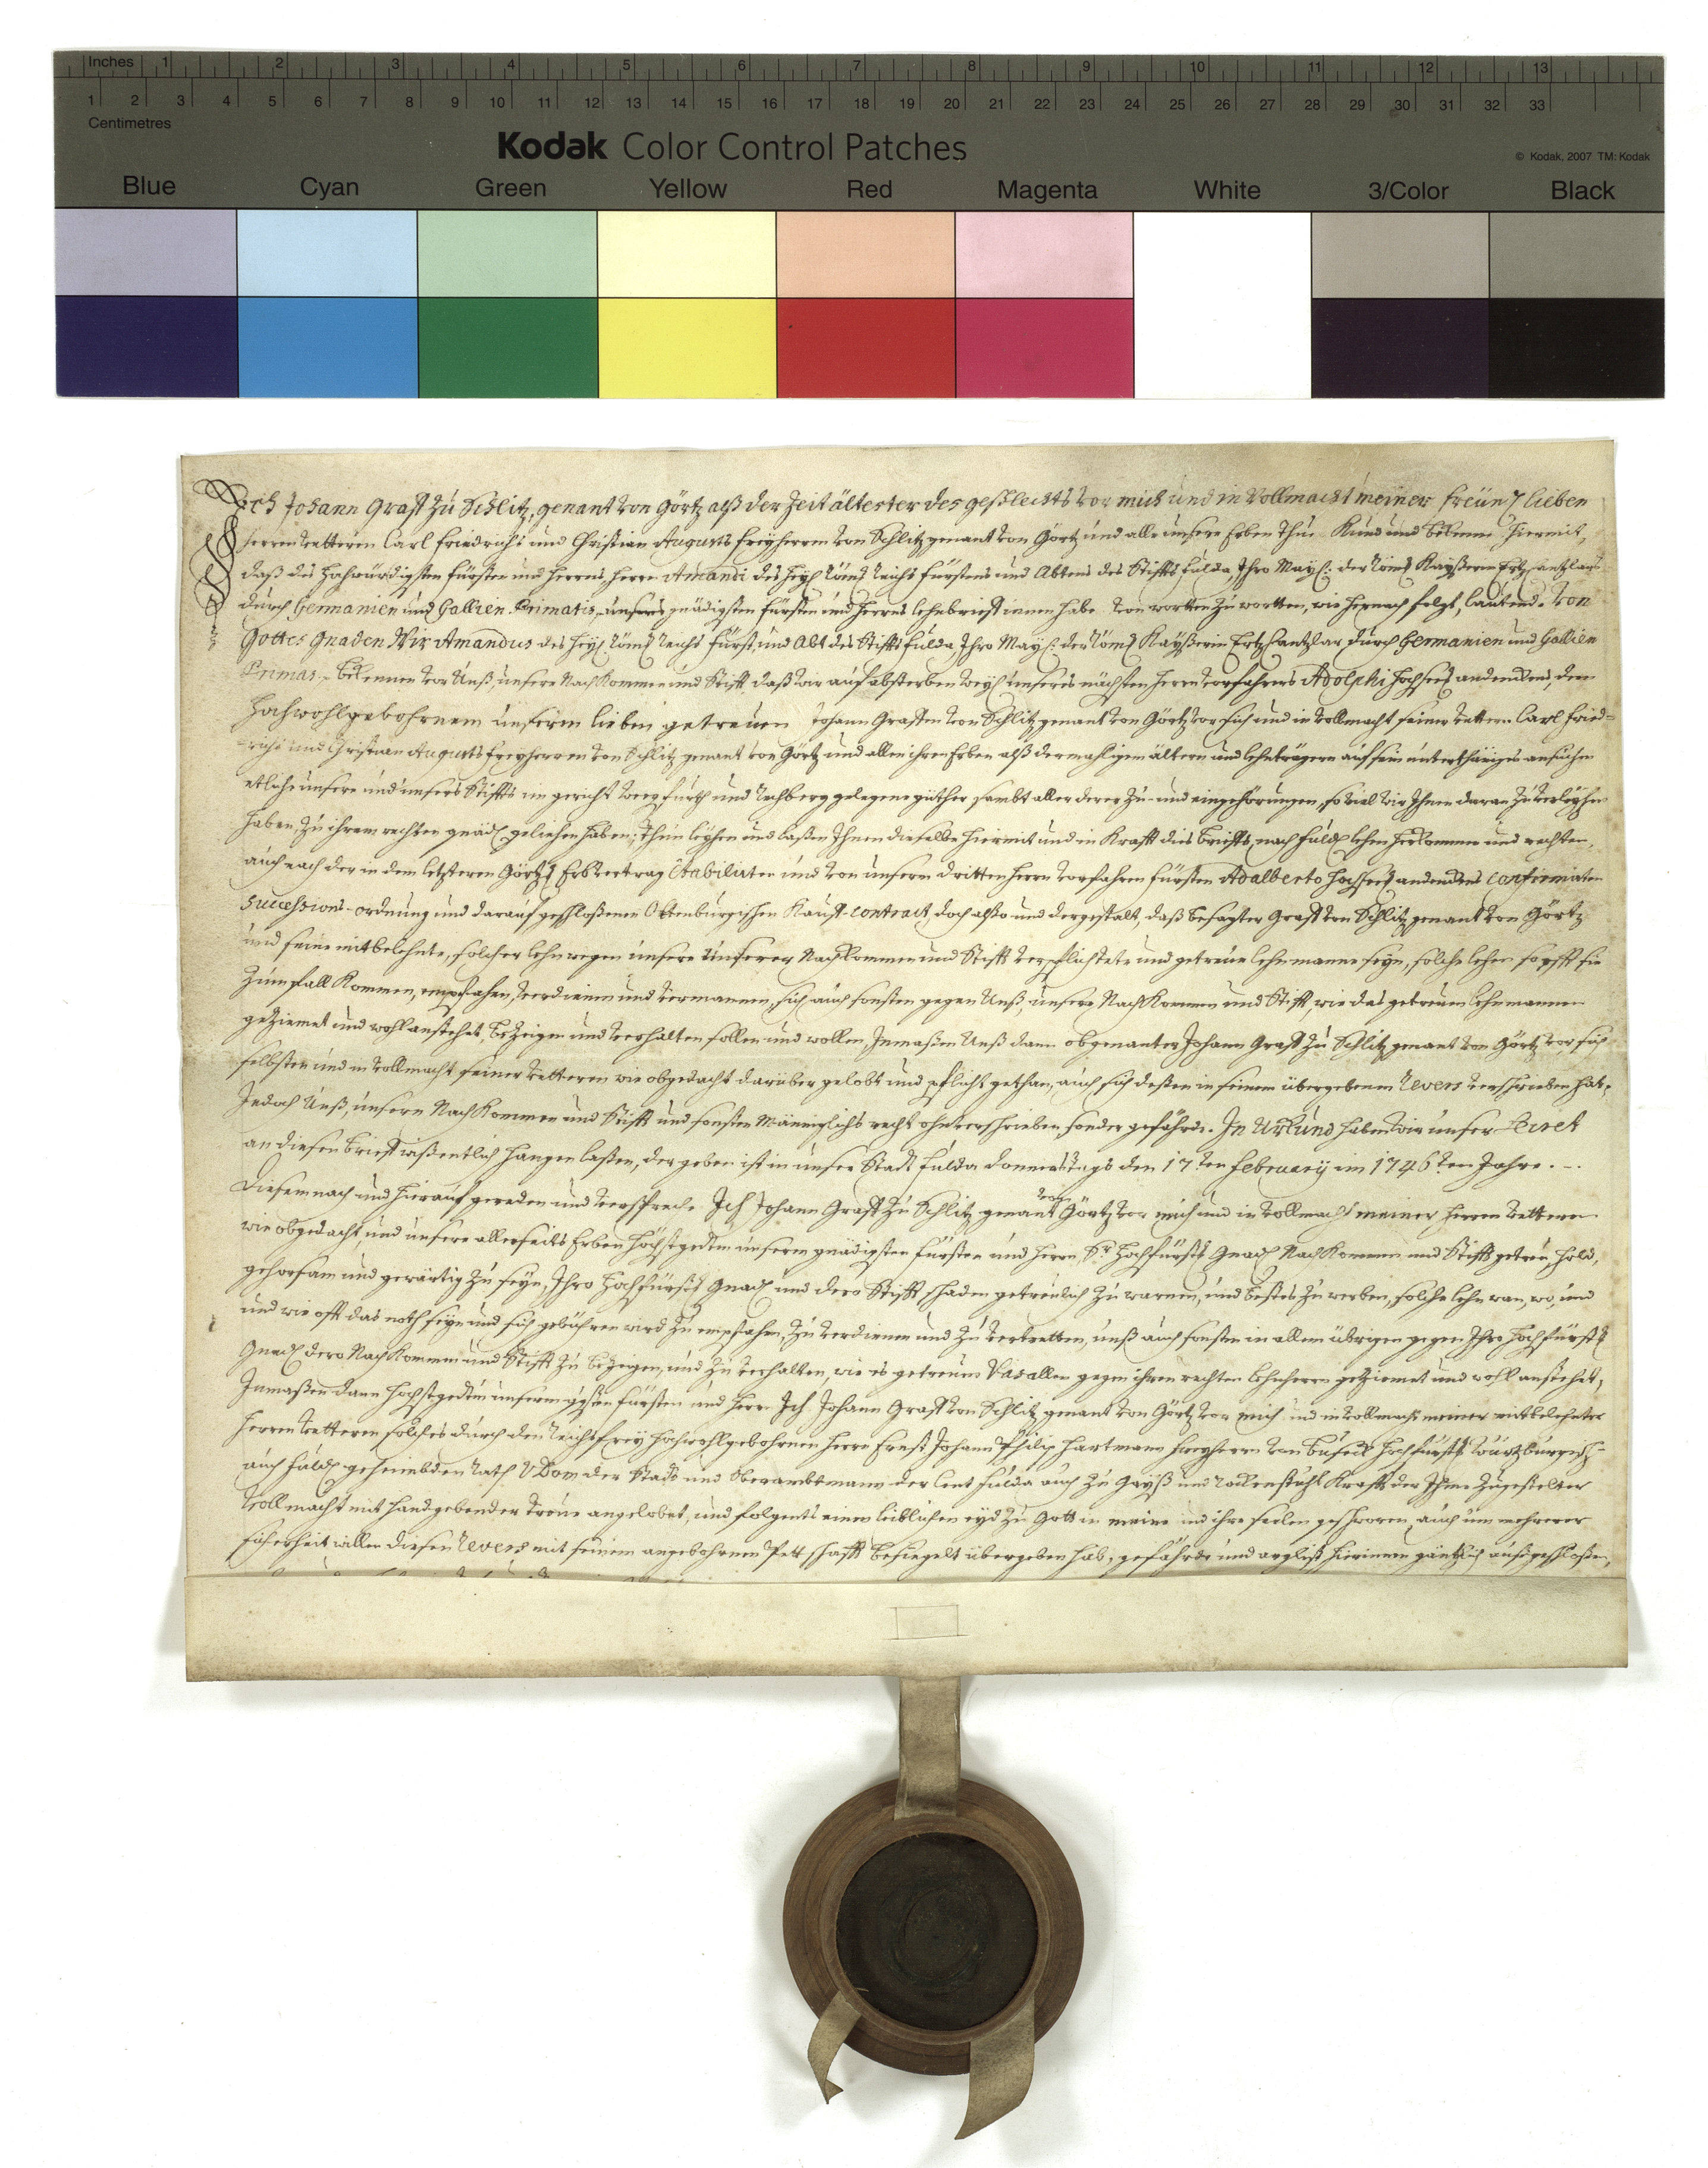 Inches 1 2 3 4 5 6 7 8 9 10 11 12 13
1 2 3 4 5 6 7 8 9 10 11 12 13 14 15 16 17 18 19 20 21 22 23 24 25 26 27 28 29 30 31 32 33
Centimetres
Kodak Color Control Patches © Kodak, 2007 TM: Kodak
Blue Cyan Green Yellow Red Magenta White 3/Color Black
Ich Johann Graff zu Schlitz, genant von Görtz alß der Zeit ältester des geschlechts vor mich und in Vollmacht meiner freundlieben
herren Vetteren Carl Friedrichs und Christian Augusts freyherren von Schlitz genant von Görtz und alle unsere Erben thue Kund und bekenne hiermit,
daß des hochwürdigsten fürsten und herrens, herrn Amandi des heyl. Röml. Reichs fürstens und Abtens des Stiffts Fulda, Ihro May: der Röml. Kayßerin Ertzcantzlars
durch Germanien und Gallien Primatis, unsers gnädigsten fürsten und herrns lehnbrieff innen habe von wortten zu wortten, wie hernach folgt, lautend. Von
Gottes Gnaden Wir Amandus des heyl. Röml. Reichs fürst, und Abt des Stiffts Fulda, Ihro May: der Röml. Kayßerin Ertzcantzlar durch Germanien und Gallien
Primas, bekennen vor Unß, unsere Nachkommen und Stifft daß wir auf absterben weyl. unseres nächsten herrn vorfahrers Adolphi hochseel. andenckens, dem
hochwohlgebohrnem unserem lieben getreuen Johann Graffen von Schlitz genant von Görtz vor sich und in vollmacht seiner Vettern Carl Fried-
richs und Christian Augusts freyherren von Schlitz genant von Görtz und allen ihren Erben alß dermahligem ältern und lehnträgern auff sein unterthäniges ansuchen
etliche unsere und unsers Stiffts im gericht Wegfurth und Rechberg gelegene güther sambt aller derer zu- und eingehörungen, so viel wir Ihnen daran zu verleyhen
haben, zu ihrem rechten gnädl. geliehen haben; thun leyhen und laßen Ihnen dieselbe hiermit und in Krafft dis brieffs, nach fuld. lehen herkommen und rechten,
auch nach der in dem letzteren Görtz. Erbvertrag stabilirten und von unserm dritten herrn vorfahren fürsten Adalberto hochseel. andenckens confirmirten
Successions-ordnung und darauf geschloßenen Ottenburgischen Kauff-contract, doch alßo und dergestalt, daß besagter Graff von Schlitz genant von Görtz
und seine mitbelehnte, solcher lehn wegen unsere unserer Nachkommen und Stifft verpflichtete und getreue lehnmanne seyn, solche lehen so offt sie
zum fall kommen, empfahen, verdienen und vermannen, sich auch sonsten gegen Unß, unsere Nachkommen und Stifft, wie das getreuen lehnmannen
geziemet und wohl anstehet, bezeigen und verhalten sollen und wollen, Inmaßen Unß dann obgenanter Johann Graff zu Schlitz genant von Görtz vor sich
selbsten und in vollmacht seiner Vetteren wie obgedacht darüber gelobt und pflicht gethan, auch sich deßen in seinem übergebenem Revers verschrieben hat,
Jedoch Unß, unsern Nachkommen und Stifft und sonsten Männiglichs recht ohnverschrieben, sonder gefährde. In Urkund haben wir unser Secret
an diesen brieff wißentlich hangen laßen, der geben ist in unser Stadt Fulda donnerstags den 17ten February im 1746ten Jahre.
Diesemnach und hierauf gereden und verspreche Ich Johann Graff zu Schlitz genant von Görtz vor mich und in vollmacht meiner herren Vetteren
wie obgedacht, und unsere allerseits Erben höchstgedtm unserem gnädigsten fürsten und herrn, Sr. hochfürstl. Gnad. Nachkommen und Stifft getreu, hold,
gehorsam und gewärtig zu seyn, Ihro hochfürstl. Gnad. und dero Stifft schaden getreulich zu warnen, und bestes zu werben, solche lehn wan, wo, und
und wie offt das noth seyn und sich gebühren wird zu empfahen, zu verdienen und zu vertretten, unß auch sonsten in allem übrigen gegen Ihro hochfürstl.
Gnad. dero Nachkommen und Stifft zu bezeigen, und zu verhalten, wie es getreuen Vasallen gegen ihren rechten lehnherrn geziemet und wohl anstehet,
Inmaßen dann höchstgedtm unserem gdsten fürsten und herrn Ich Johann Graff von Schlitz genant von Görtz vor mich und in vollmacht meiner mitbelehnter
herren Vetteren solches durch den Reichsfrey hochwohlgebohrnen herrn Ernst Johann Philip Hartmann freyherrn von Buseck hochfürstl. Würtzburgisch-
auch fuld. geheimbden Rath VDom der Stadt und Oberambtmann der Cent Fulda auch zu Gayß und Rockenstuhl Krafft der Ihme zugestelter
Vollmacht mit handgebender treue angelobet, und folgents einen leiblichen eyd zu Gott in meine und ihre seelen geschworen, auch um mehrerer
sicherheit willen diesen Revers mit seinem angebohrnen Pettschafft besiegelt übergeben hab, gefährde und arglist hierinnen gäntzlich außgeschloßen,